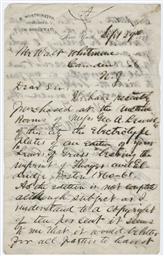 R. WORTHINGTON
770 BROADWAY
Sept 29th
Mr Walt Whitman
Camden
N.J.
Dear Sir
I have recently
purchased at the Auction
Rooms of Messrs Geo A Leavitt
of this city the Electrotype
plates of an edition of your
Leaves of Grass bearing the
imprint of Thayer and El-
dridge Boston 1860-61.
As the edition is not complete
although subject as I
understand to a Copyright
of ten per cent it seems
to me that it would be better
for all parties to have it